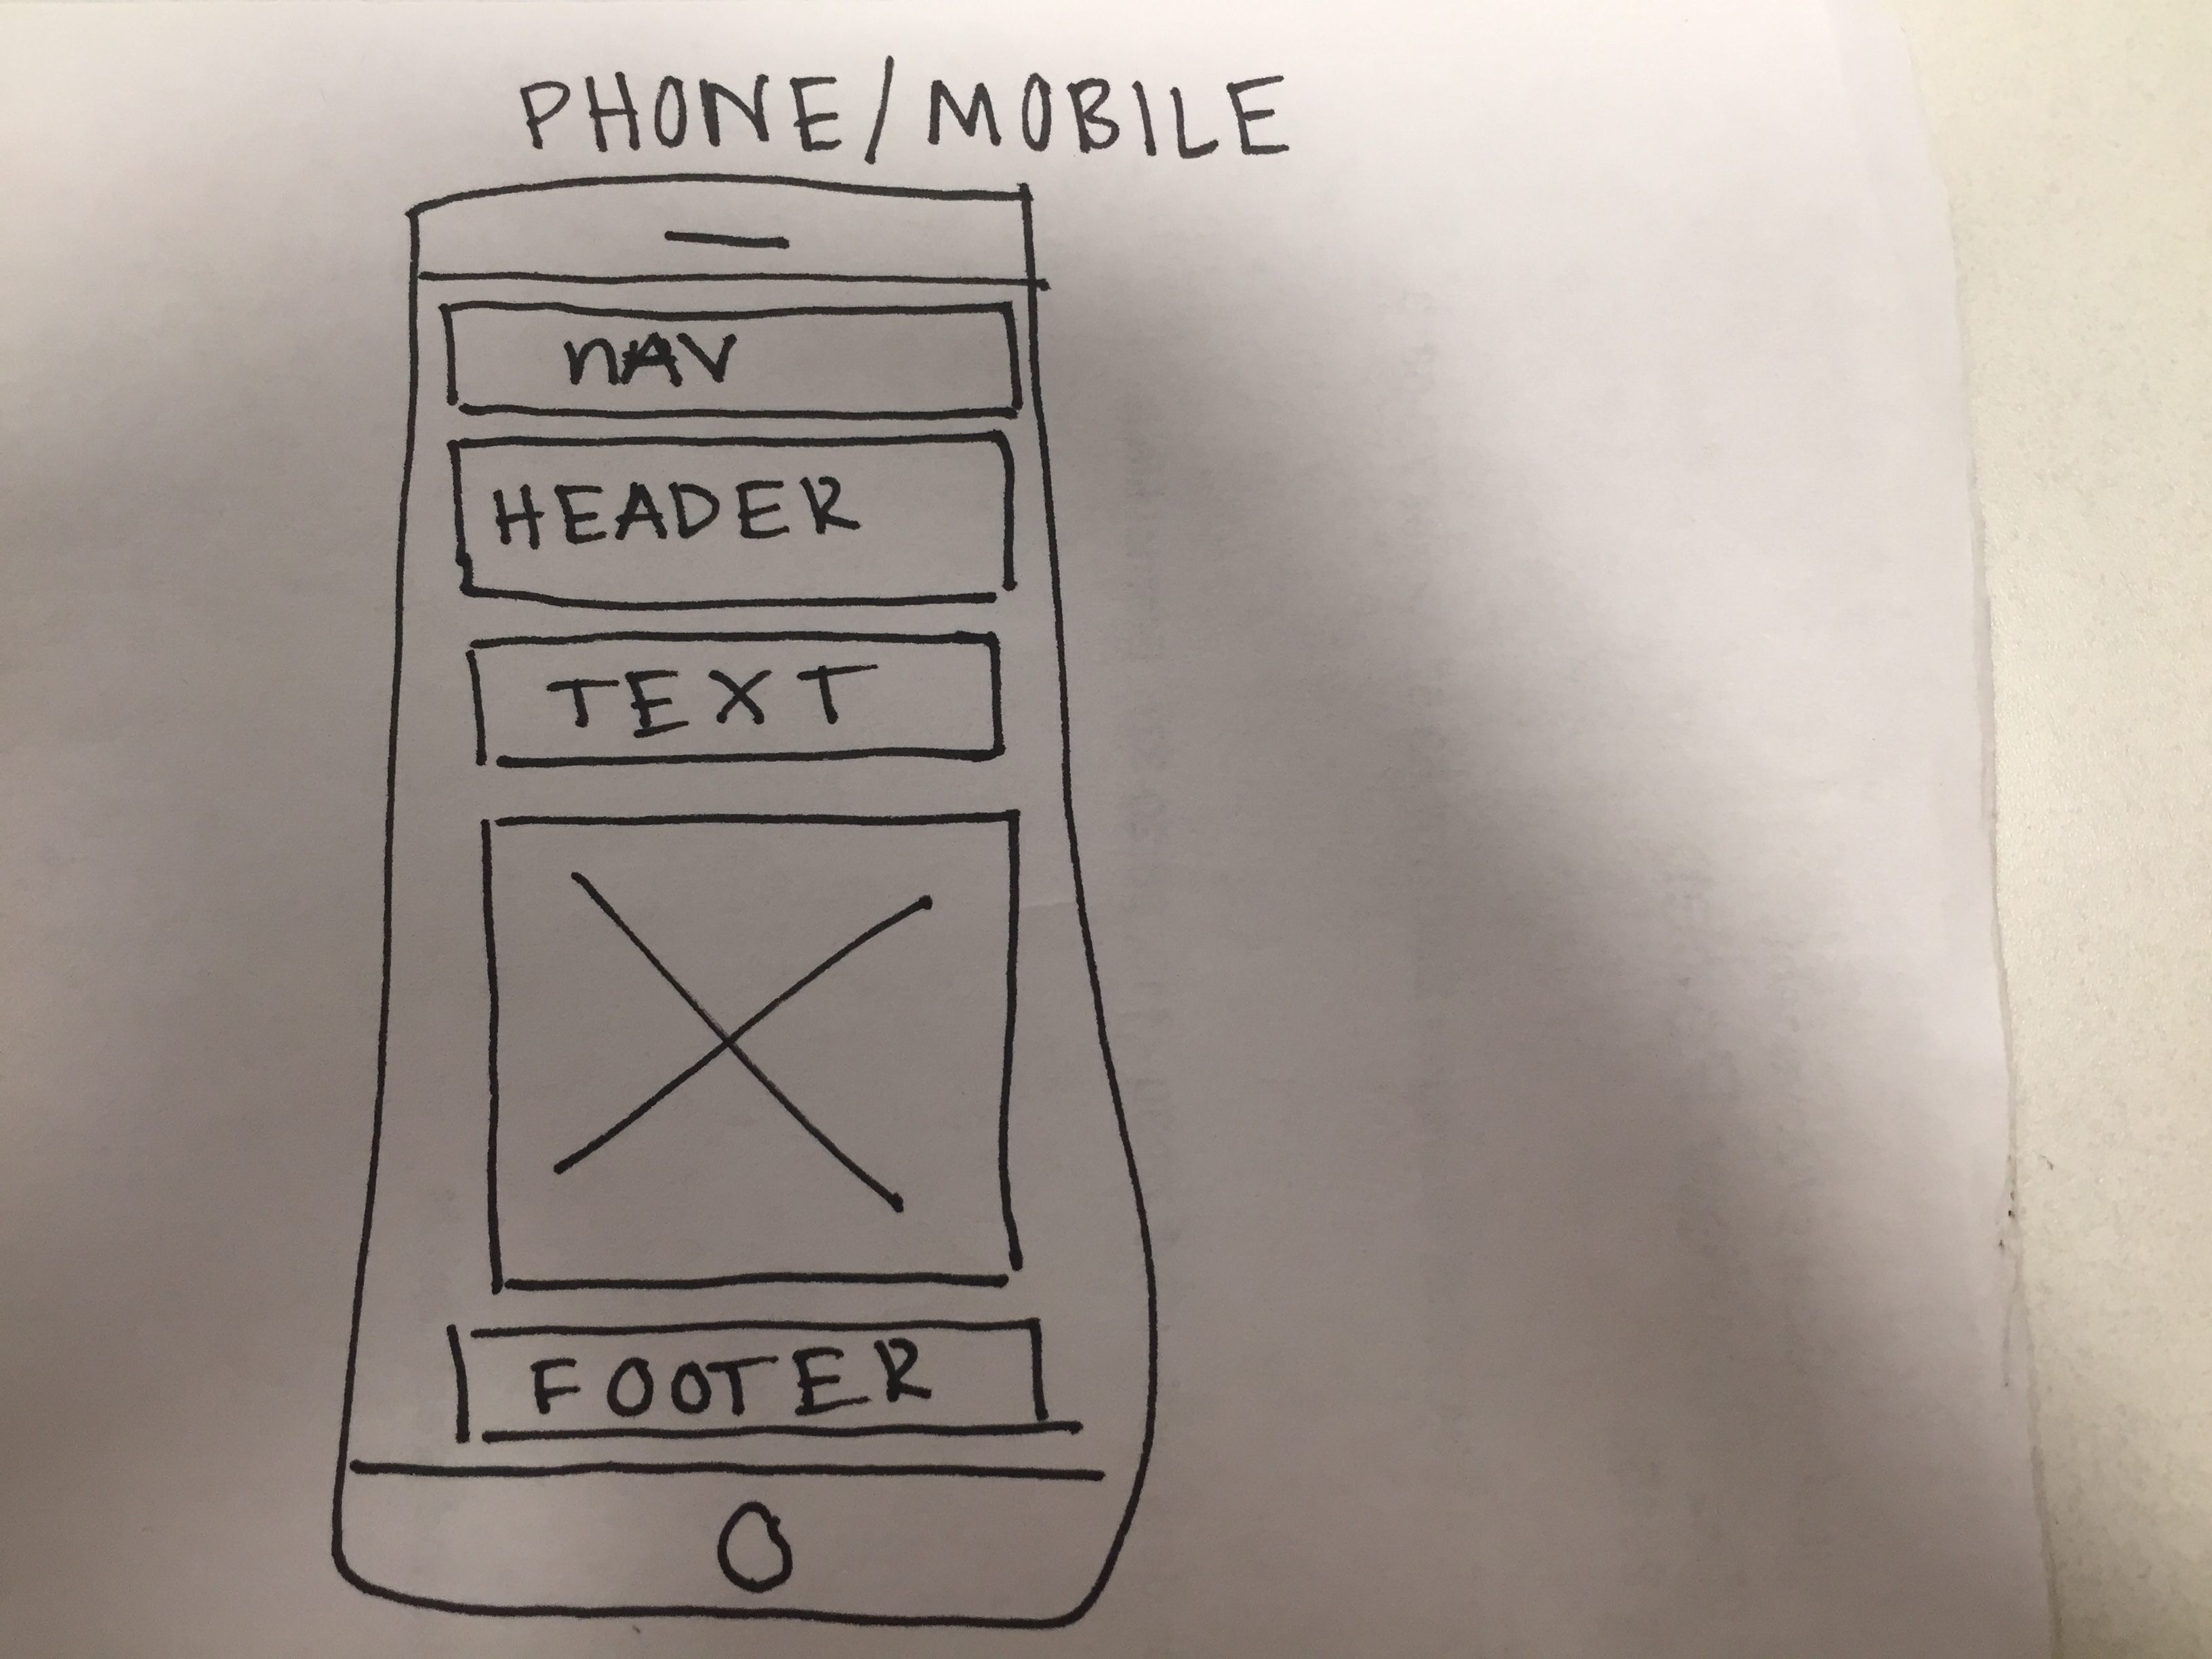 PHONE/MOBILE
nAV
HEADER
TEXT
FOOTER